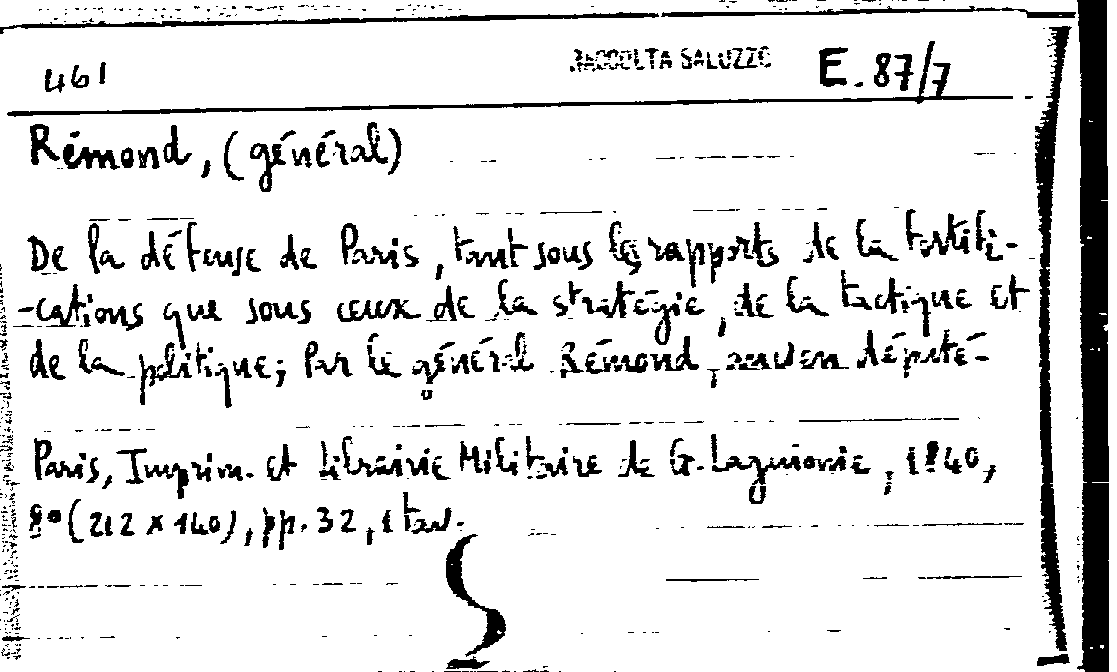 461 RACCOLTA SALUZZO E. 87/7
Rémond, (général)
De la défense de Paris, tant sous les rapports de la fortifi-
-cations que sous ceux de la stratégie, de la tactique et
de la politique; Par le général Rémond, ancien député-
Paris, Imprim. et Librairie Militaire de G. Laguionie, 1840,
8° (212 x 140), pp. 32, 1 tav.